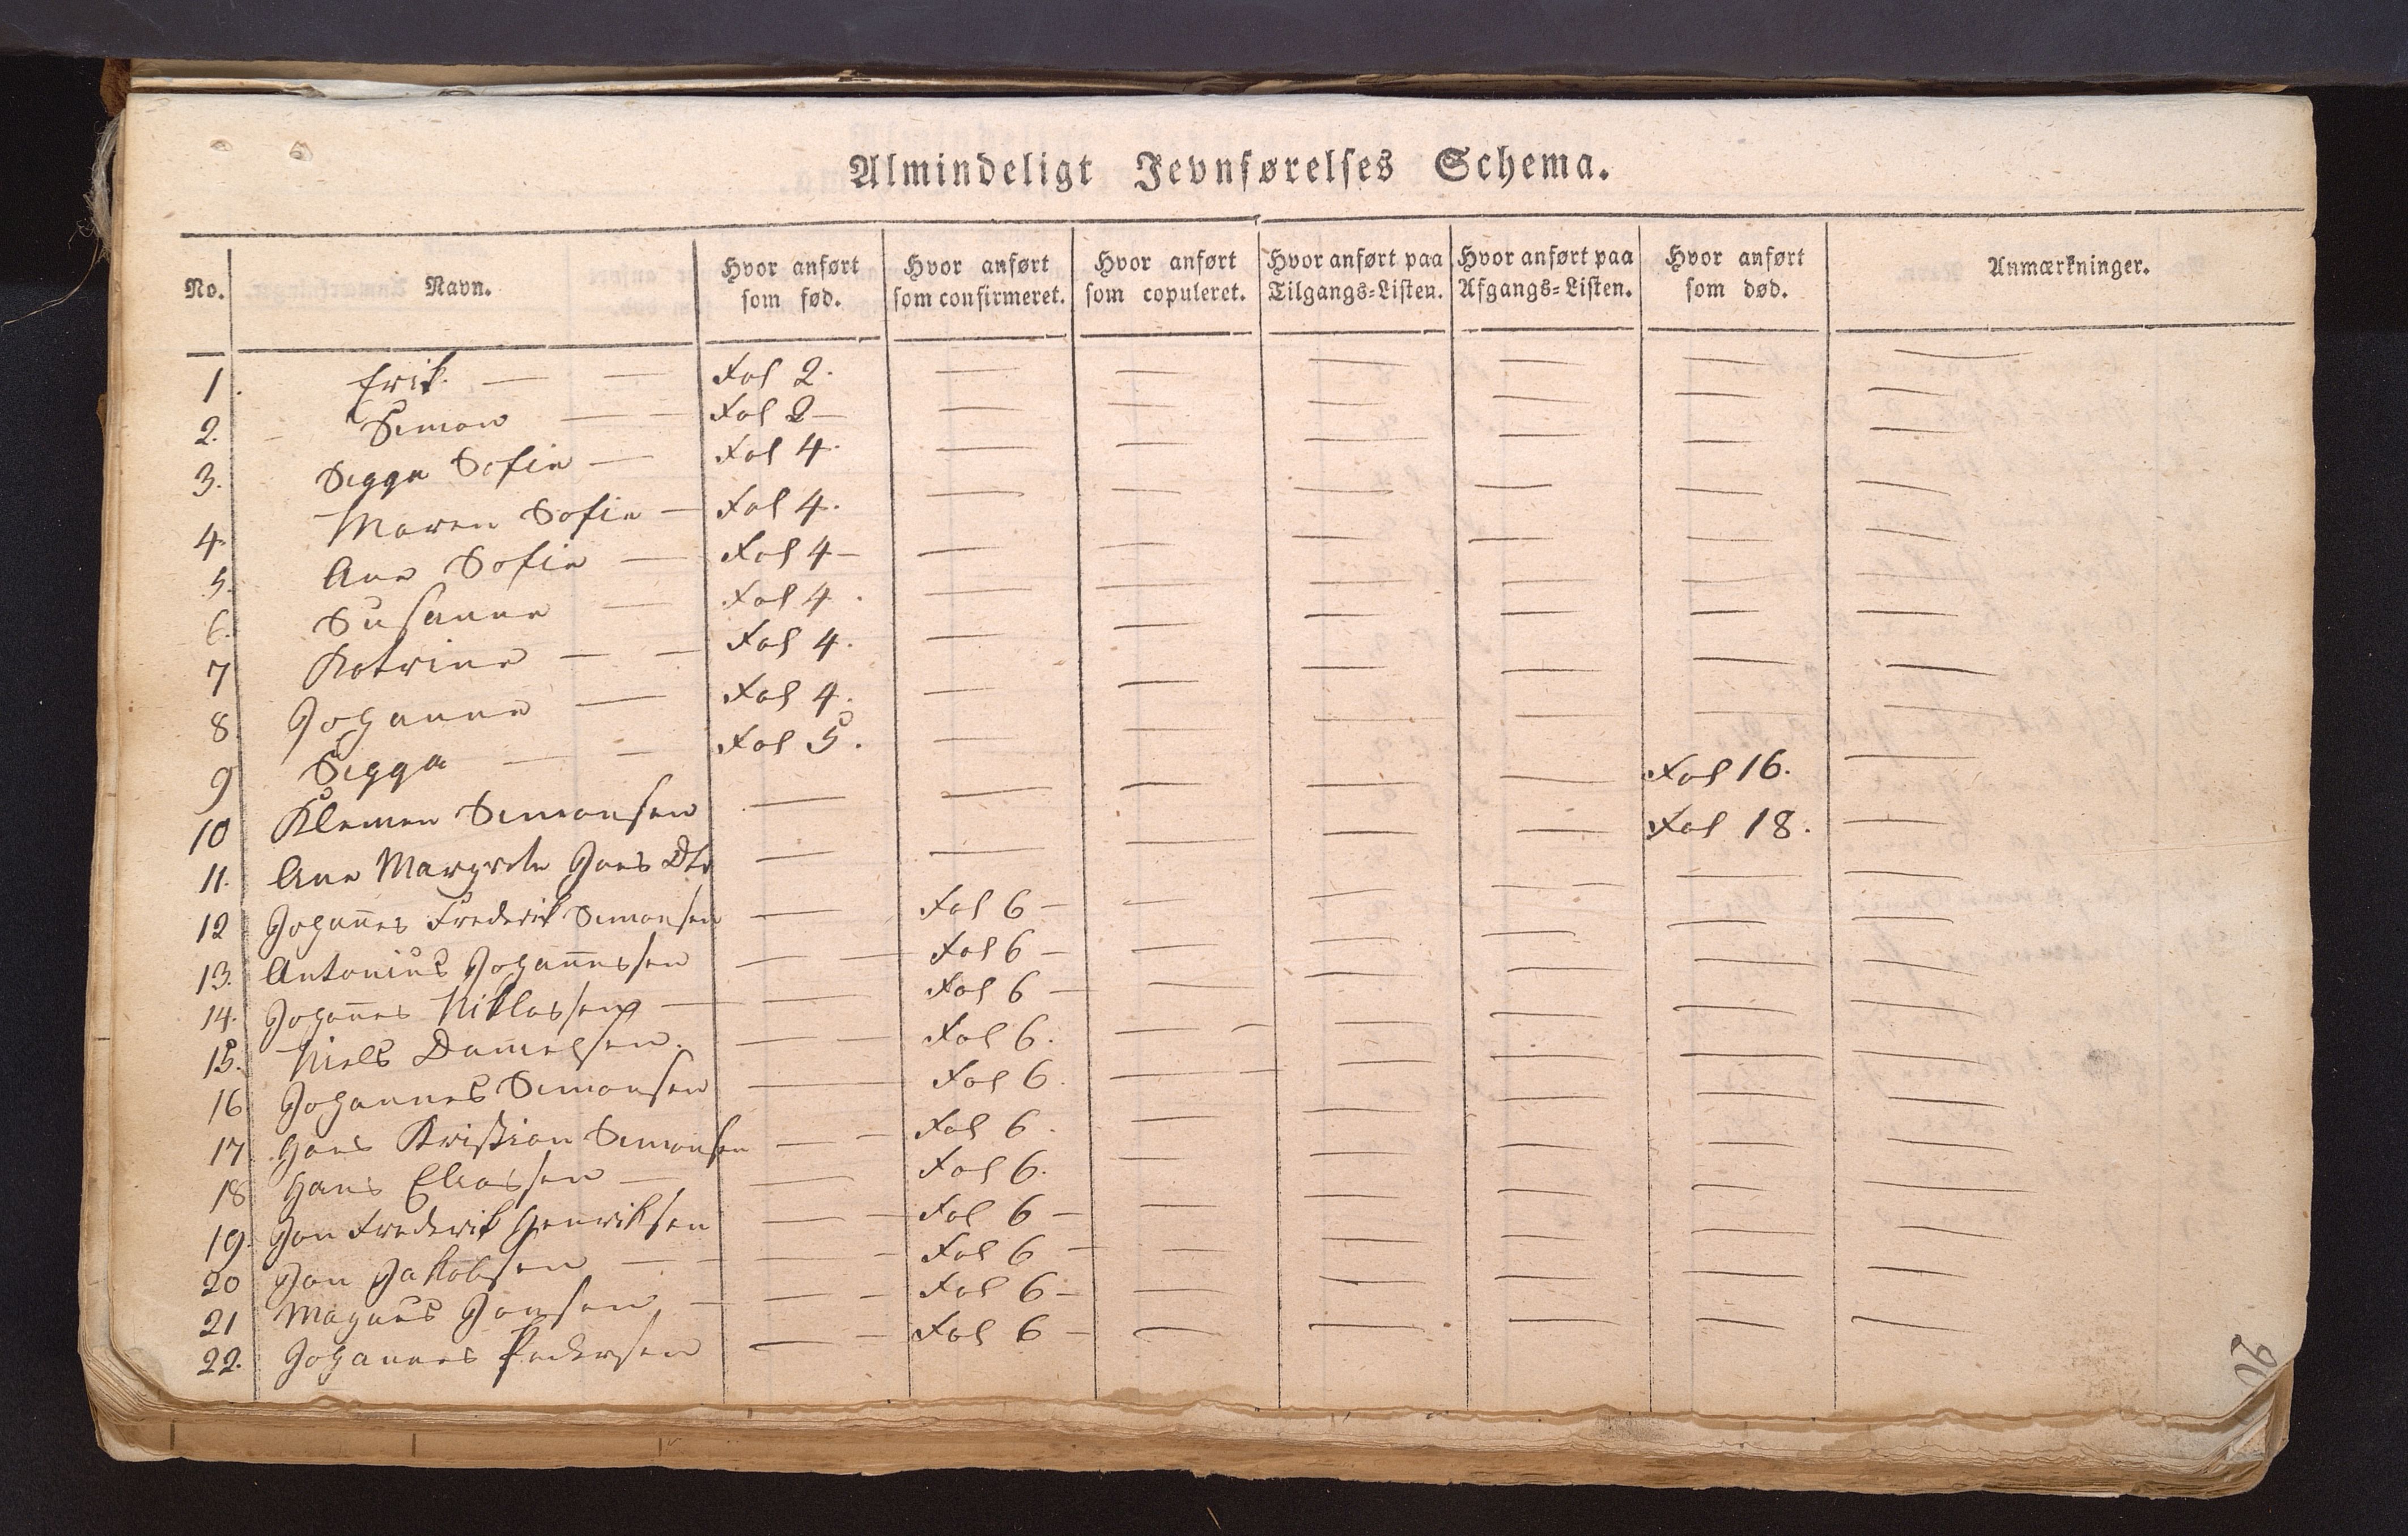 Almindeligt Jevnførelses Schema.
No. Navn. Hvor anført som fød. Hvor anført som confirmeret. Hvor anført som copuleret. Hvor anført paa Tilgangs-Listen. Hvor anført paa Afgangs-Listen. Hvor anført som død. Anmærkninger.
1. Erik. — — Fol 2. — — — — — —
2. Simon — — Fol 2 — — — — — — —
3. Sigga Sofie — Fol 4. — — — — — —
4. Maren Sofie — Fol 4. — — — — — —
5. Ane Sofie — Fol 4 — — — — — — —
6. Susanne — Fol 4. — — — — — —
7 Katrine — — Fol 4. — — — — — —
8 Johanne — Fol 4. — — — — — —
9 Sigga — — Fol 5. — — — — — —
10 Klemen Simonsen — — — — — Fol 16. —
11. Ane Margrete Joens Dtr — — — — — Fol 18. —
12 Johannes Frederik Simonsen — Fol 6 — — — — — —
13. Antonius Johannessen — — Fol 6 — — — — — —
14. Johannes Niklassen — — Fol 6 — — — — — —
15. Niels Danielsen. — — Fol 6. — — — — — —
16 Johannes Simonsen — Fol 6. — — — — — —
17 Hans Kristian Simonsen — — Fol 6. — — — — —
18 Hans Eliassen — — Fol 6. — — — — —
19. Jon Frederik Henriksen — — Fol 6 — — — — — —
20 Jon Jakobsen — — — — Fol 6 — — — — — —
21 Magnus Jonsen — — — Fol 6 — — — — — —
22. Johannes Pedersen — — Fol 6 — — — — — —